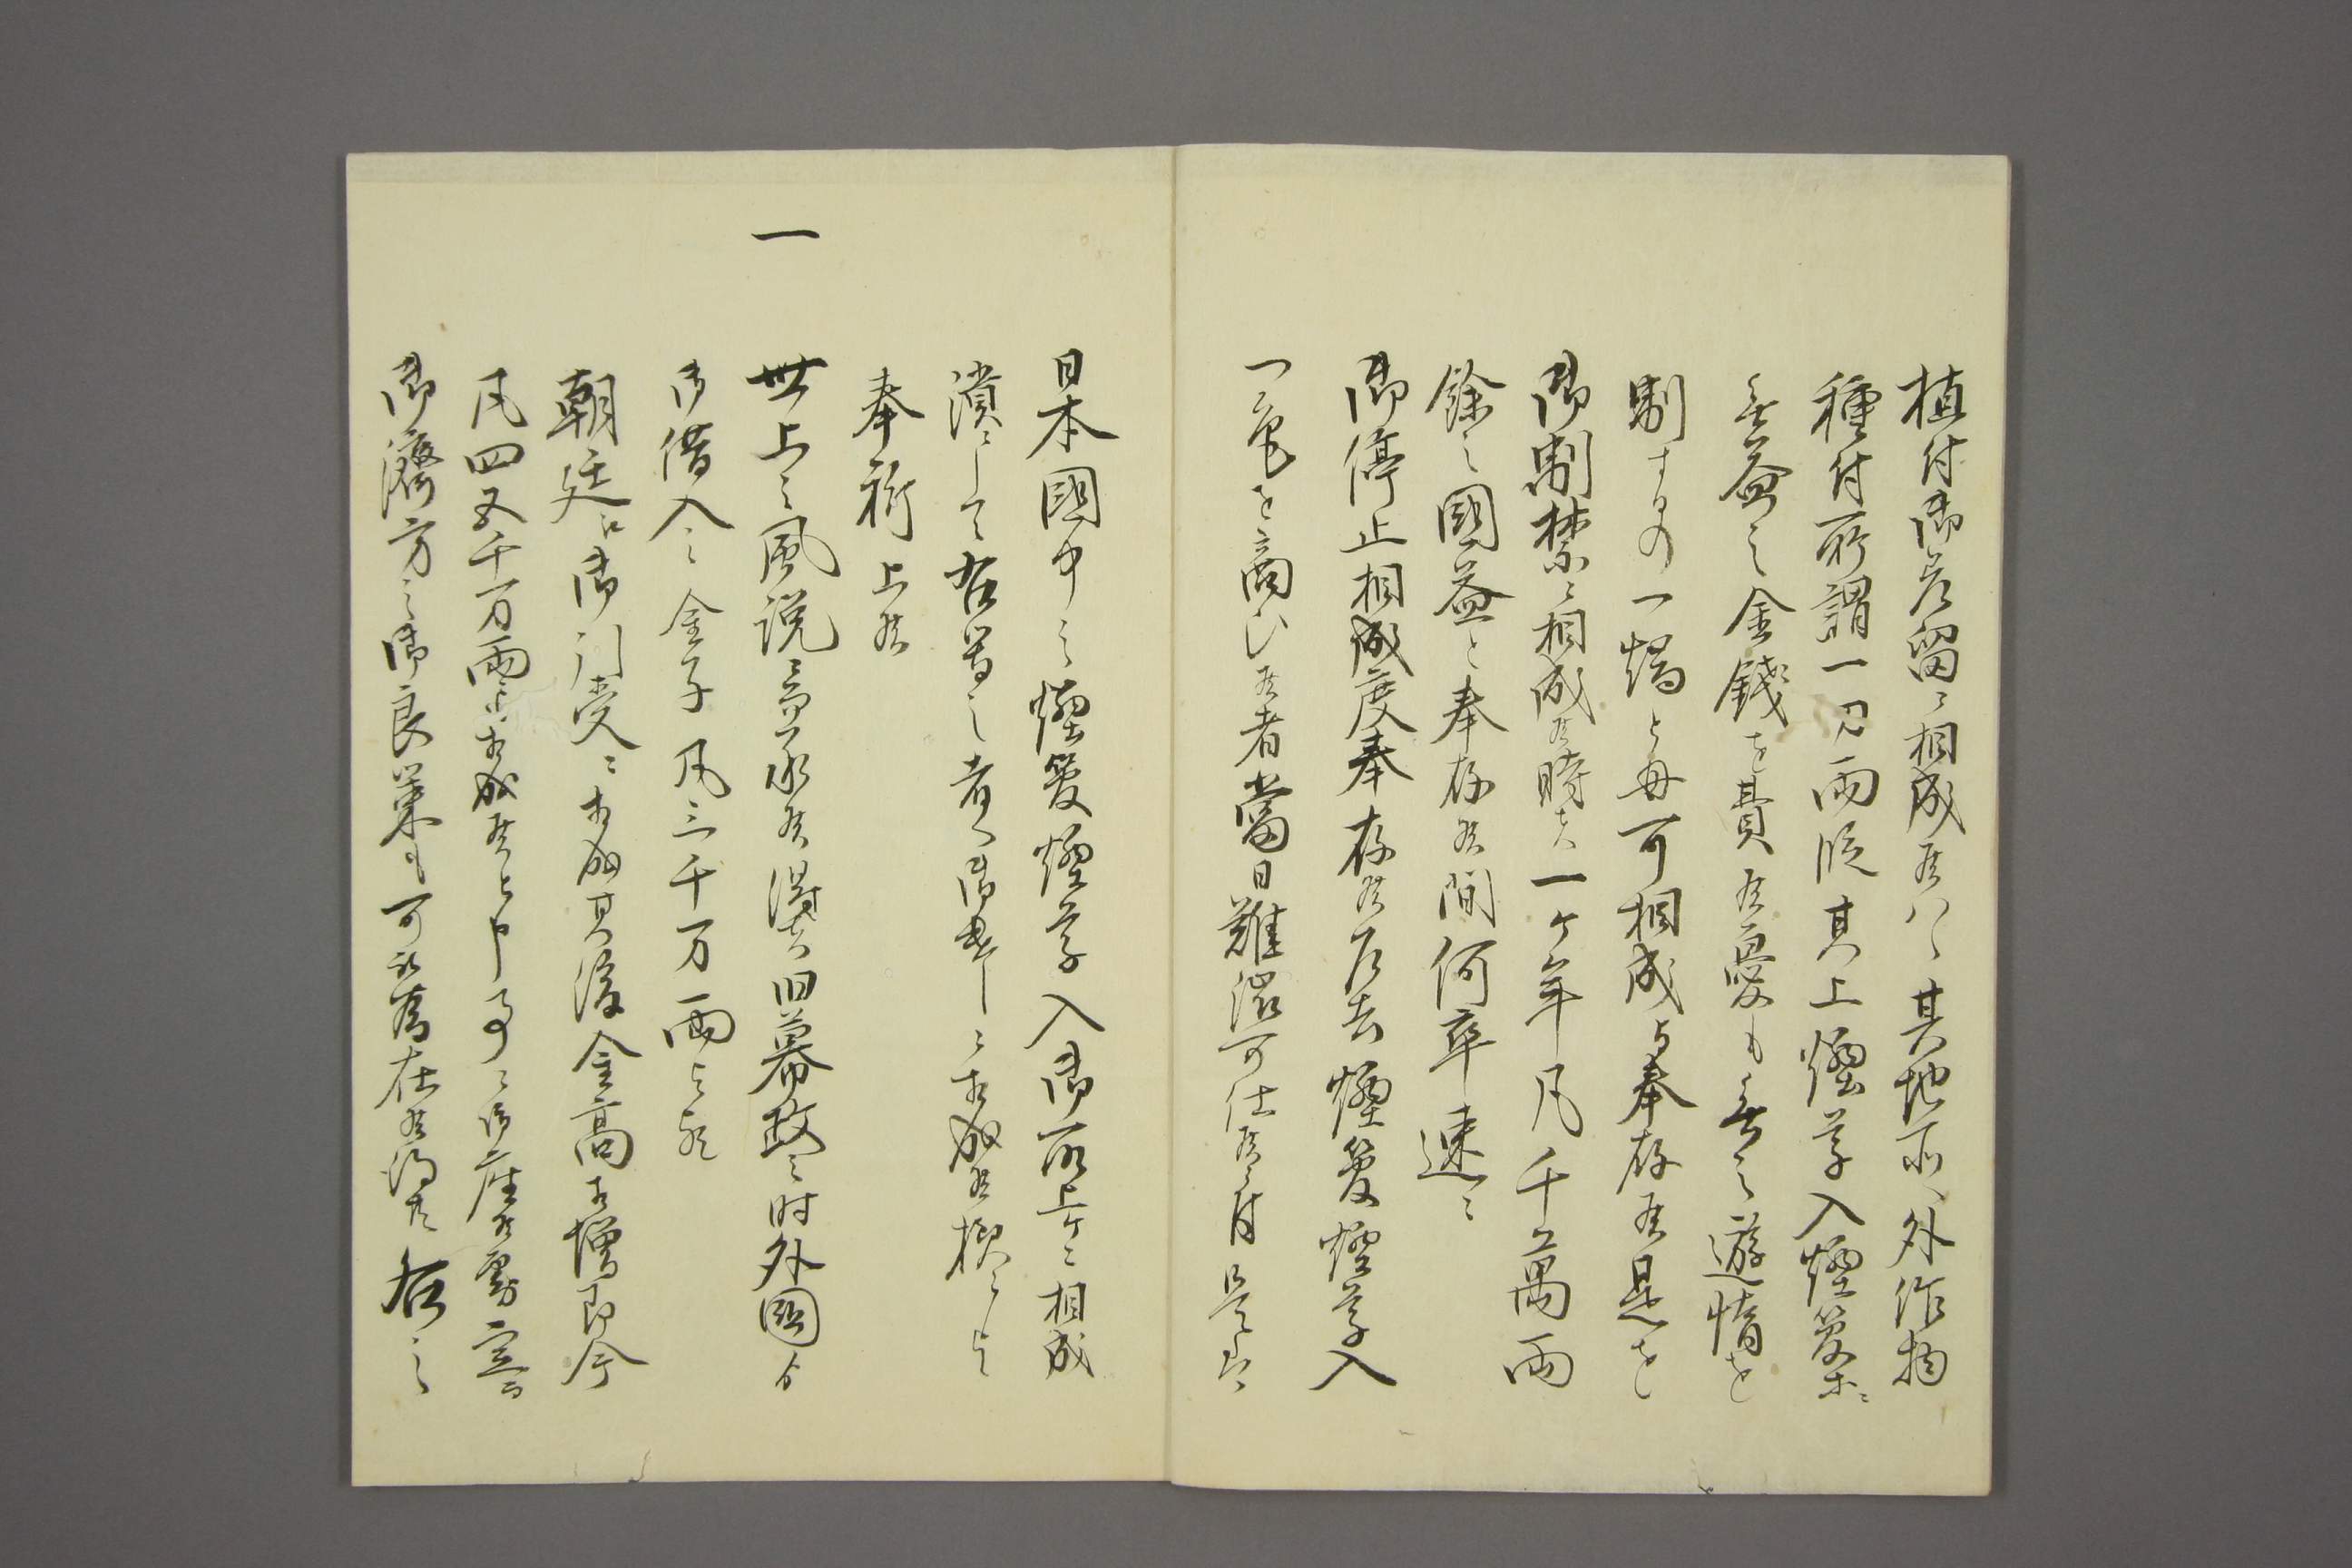 植付御差留ニ相成候ハヽ其地所ヘ外作物
種付所謂一刀両段其上煙草入煙管等ニ
無益之金銭を費候憂も無之遊惰を
制するの一端とも可相成与奉存候是を
御制禁ニ相成候時者一ヶ年凡千萬両
余之國益と奉存候間何卒速ニ
御停止相成度奉存候尤煙管煙草入
一篇を商ひ候者当日難渋可仕候ニ付是非
日本國中之煙管煙草入御取上ケニ相成
潰ニして右等之者ヘ御手当ニ相成候様ニと
奉祈上候
一
世上之風説ニ而承候得者旧幕政之時外國ゟ
御借入之金子凡三千万両与欤
朝廷江御引受ニ相成其後金高相増即今
凡四五千万両ニ相成候と申事ニ御座候勿論
御済方之御良策も可被為在候得共右之